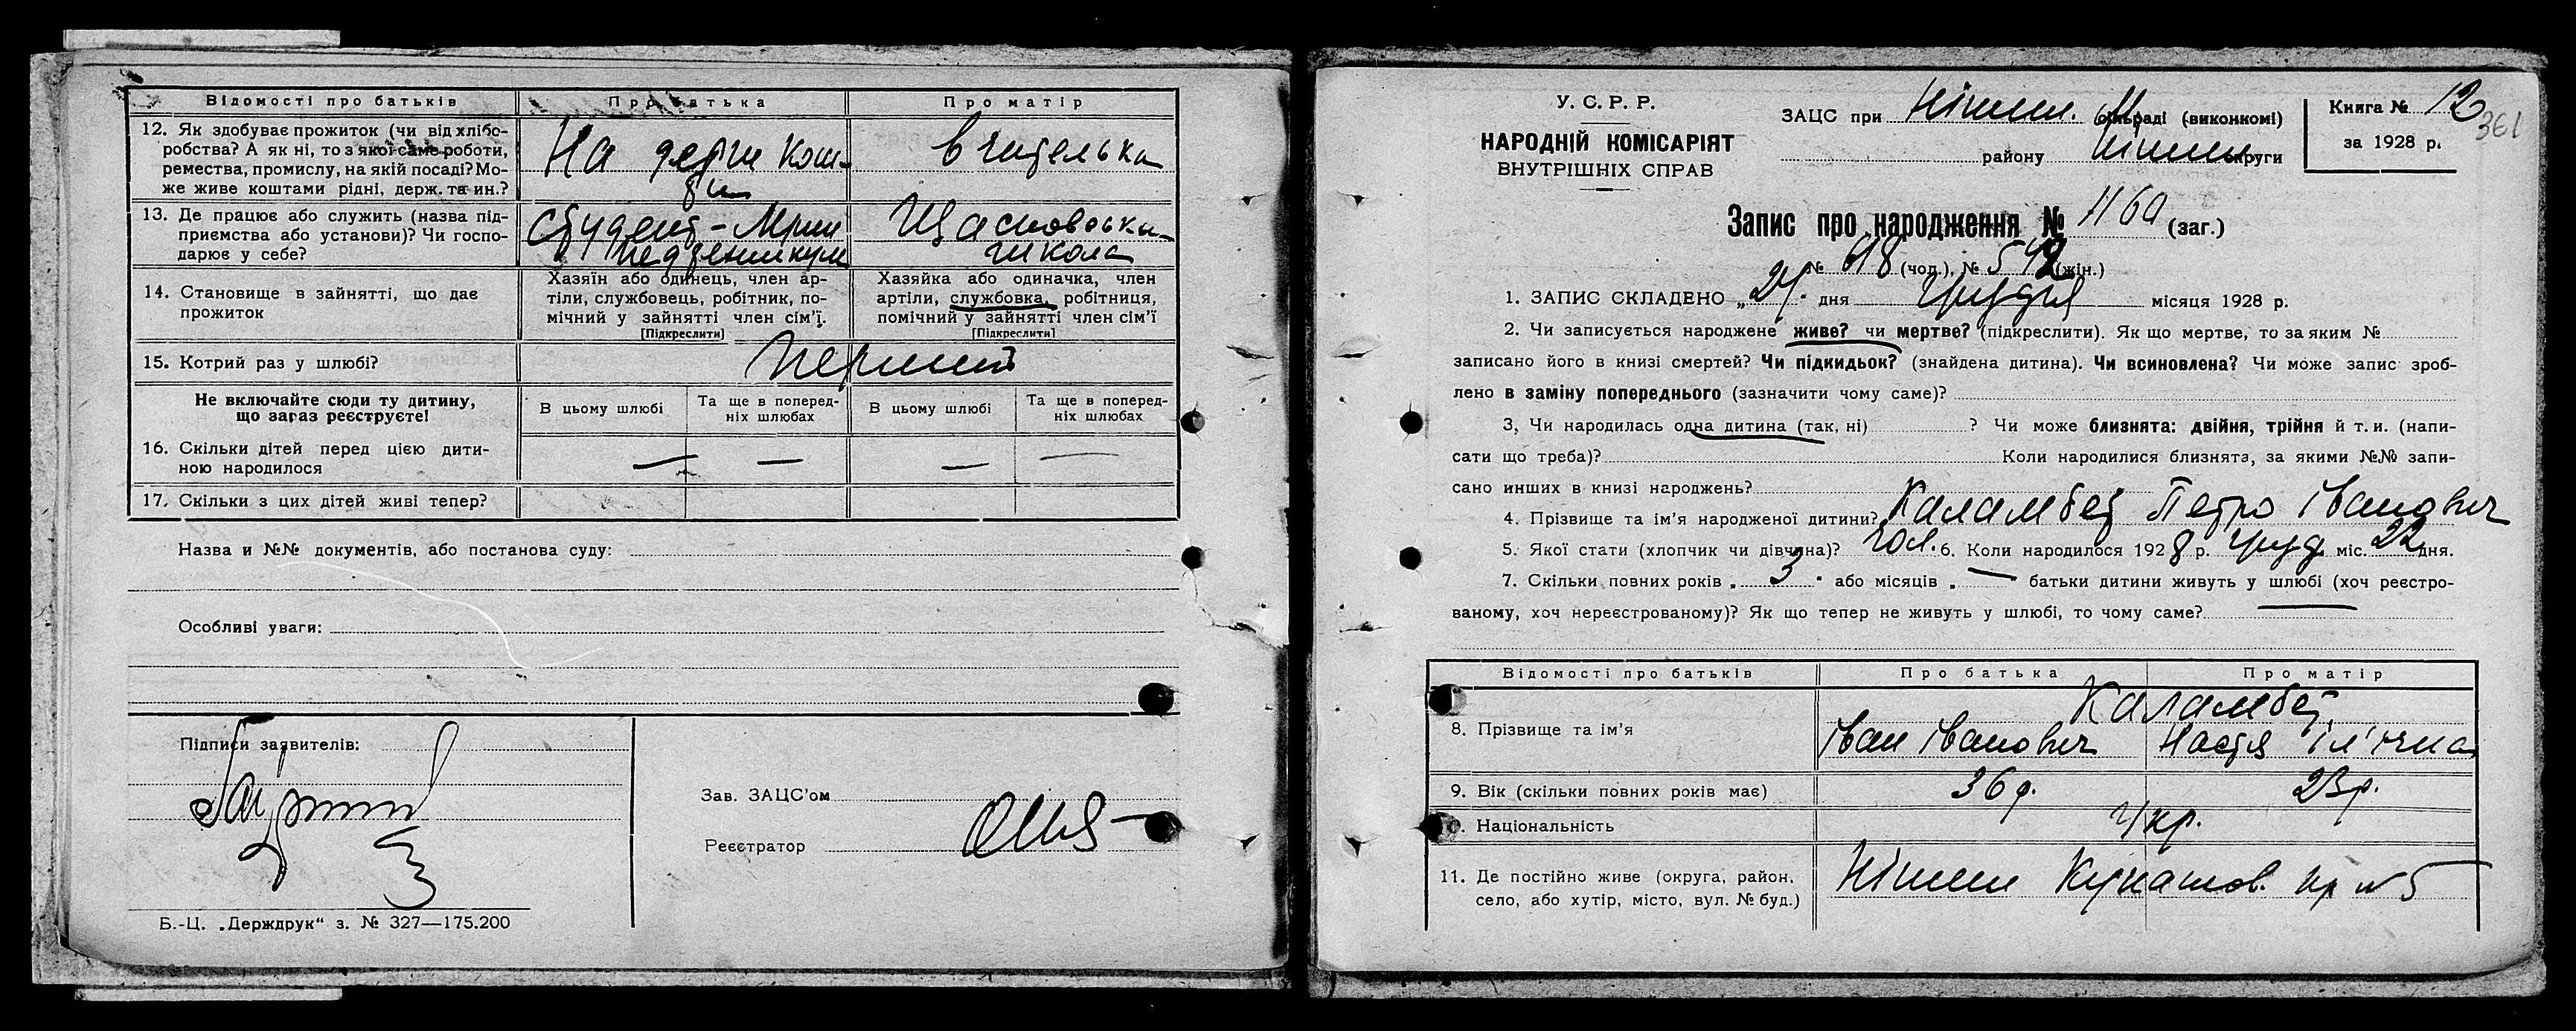 Відомості про батьків Про батька Про матір
12. Як здобуває прожиток (чи від хлібо-
робства? А як ні, то з якої саме роботи,
ремества, промислу, на якій посаді? Мо-
же живе коштами рідні, держ. та ин.?
На держ кош-
ти
вчителька
13. Де працює або служить (назва під-
приємства або установи)? Чи госпо-
дарює у себе?
студент-
педтехнікум
школа
14. Становище в зайнятті, що дає
прожиток
Хазяїн або одинець, член ар-
тіли, службовець, робітник, по-
мічний у зайнятті член сім'ї.
[Підкреслити]
Хазяйка або одиначка, член
артіли, службовка, робітниця,
помічний у зайнятті член сім'ї
[Підкреслити]
15. Котрий раз у шлюбі?
перший
Не включайте сюди ту дитину,
що зараз реєструєте!
В цьому шлюбі
Та ще в поперед-
ніх шлюбах
В цьому шлюбі
Та ще в поперед-
ніх шлюбах
16. Скільки дітей перед цією дити-
ною народилося
— — — —
17. Скільки з цих дітей живі тепер?
Назва и №№ документів, або постанова суду:
Особливі уваги:
Підписи заявителів:
Зав. ЗАЦС'ом
Реєстратор
Б.-Ц. „Держдрук“ з. № 327—175.200
У. С. Р. Р.
НАРОДНІЙ КОМІСАРІЯТ
ВНУТРІШНІХ СПРАВ
ЗАЦС при Ніжин. сільраді (виконкомі)
району Ніжин округи
Книга № 12
за 1928 р.
361
Запис про народження № 1160 (заг.)
№ 618 (чол.), № 542 (жін.)
1. ЗАПИС СКЛАДЕНО „27" дня грудня місяця 1928 р.
2. Чи записується народжене живе? чи мертве? (підкреслити). Як що мертве, то за яким №
записано його в книзі смертей? Чи підкидьок? (знайдена дитина). Чи всиновлена? Чи може запис зроб-
лено в заміну попереднього (зазначити чому саме)?
3, Чи народилась одна дитина (так, ні) ? Чи може близнята: двійня, трійня й т. и. (напи-
сати що треба)? Коли народилися близнята, за якими №№ запи-
сано инших в книзі народжень?
4. Прізвище та ім'я народженої дитини? Каламбет Петро Іванович
5. Якої стати (хлопчик чи дівчина)? чол. 6. Коли народилося 1928 р. груд. міс. 22 дня.
7. Скільки повних років „ 3 " або місяців „ — батьки дитини живуть у шлюбі (хоч реєстро-
ваному, хоч нереєстрованому)? Як що тепер не живуть у шлюбі, то чому саме?
Відомості про батьків Про батька Про матір
8. Прізвище та ім'я
Каламбет
Іван Іванович Настя Іл'їчна
9. Вік (скільки повних років має) 36 р. 23 р.
10. Національність Укр.
11. Де постійно живе (округа, район,
село, або хутір, місто, вул. № буд.)
Ніжин Кунашов. № 5